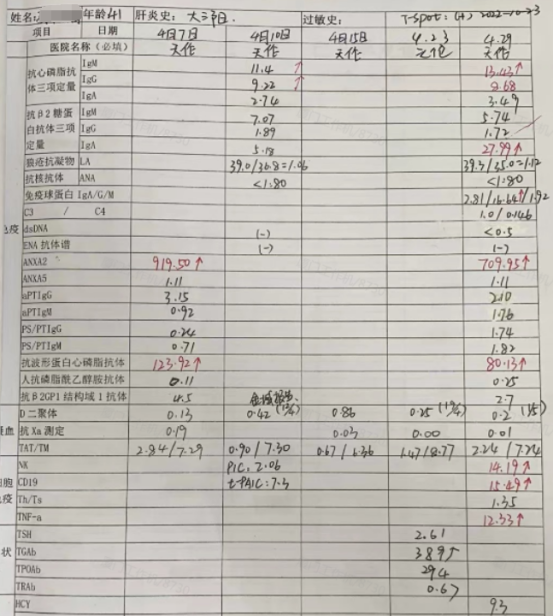 姓名: 年龄41 肝炎史: 大三阳. 过敏史: T-spot: (+) 2022-10-23
项目 日期 4月7日 4月10日 4月15日 4.23 4.29
医院名称(必填) 天作 天作 天作 天作
抗心磷脂抗体三项定量 IgM 11.4 ↑ 13.43↑
IgG 9.22 ↑ 8.68
IgA 2.74 3.49
抗β2糖蛋白抗体三项定量 IgM 7.07 5.74
IgG 1.89 1.72
IgA 5.18 27.99↑
狼疮抗凝物 LA 39.0/36.8=1.06 39.3/35.0=1.12
抗核抗体 ANA <1:80 <1:80
免疫球蛋白 IgA/G/M 2.81/16.64↑/1.92
C3 / C4 1.0/0.146
dsDNA (-) <0.5
ENA 抗体谱 (-) (-)
ANXA2 919.50↑ 709.95↑
ANXA5 1.11 1.11
aPTIgG 3.15 2.10
aPTIgM 0.92 1.76
PS/PTIgG 0.24 1.74
PS/PTIgM 0.71 1.82
抗波形蛋白心磷脂抗体 123.92↑ 80.13↑
人抗磷脂酰乙醇胺抗体 0.11 0.25
抗β2GP1结构域1抗体 4.5 2.7
D二聚体 0.13 0.42 0.86 0.25 0.2
抗Xa测定 0.19 0.03 0.00 0.01
TAT/TM 2.84/7.29 0.90/7.30 0.67/6.36 1.47/8.77 2.24/7.24
NK PIC: 2.06 14.19↑
CD19 t-PAIC: 7.3 15.49↑
Th/Ts 1.35
TNF-a 12.33↑
TSH 2.61
TGAb 3895
TPOAb 294
TRAb 0.67
HCY 9.3